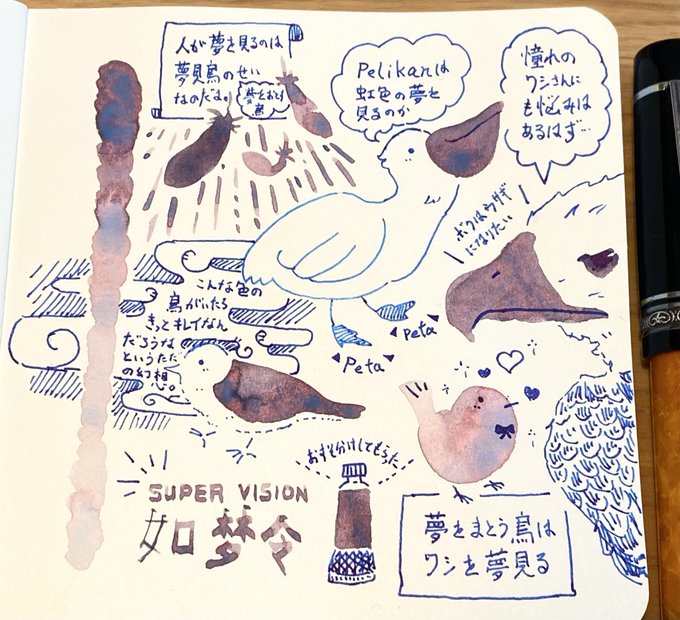 人が夢を見るのは
夢見鳥のせい
なのだよ。
夢をおとす
鳥
Pelikanは
虹色の夢を
見るのか
憧れの
ワシさんに
も悩みは
あるはず…
ボクはウサギ
になりたい
こんな色の
鳥がいたら
きっとキレイなん
だろうな
というただ
の幻想。
Peta
Peta
おすそ分けしてもらった
SUPER VISION
如梦令
夢をまとう鳥は
ワシを夢見る